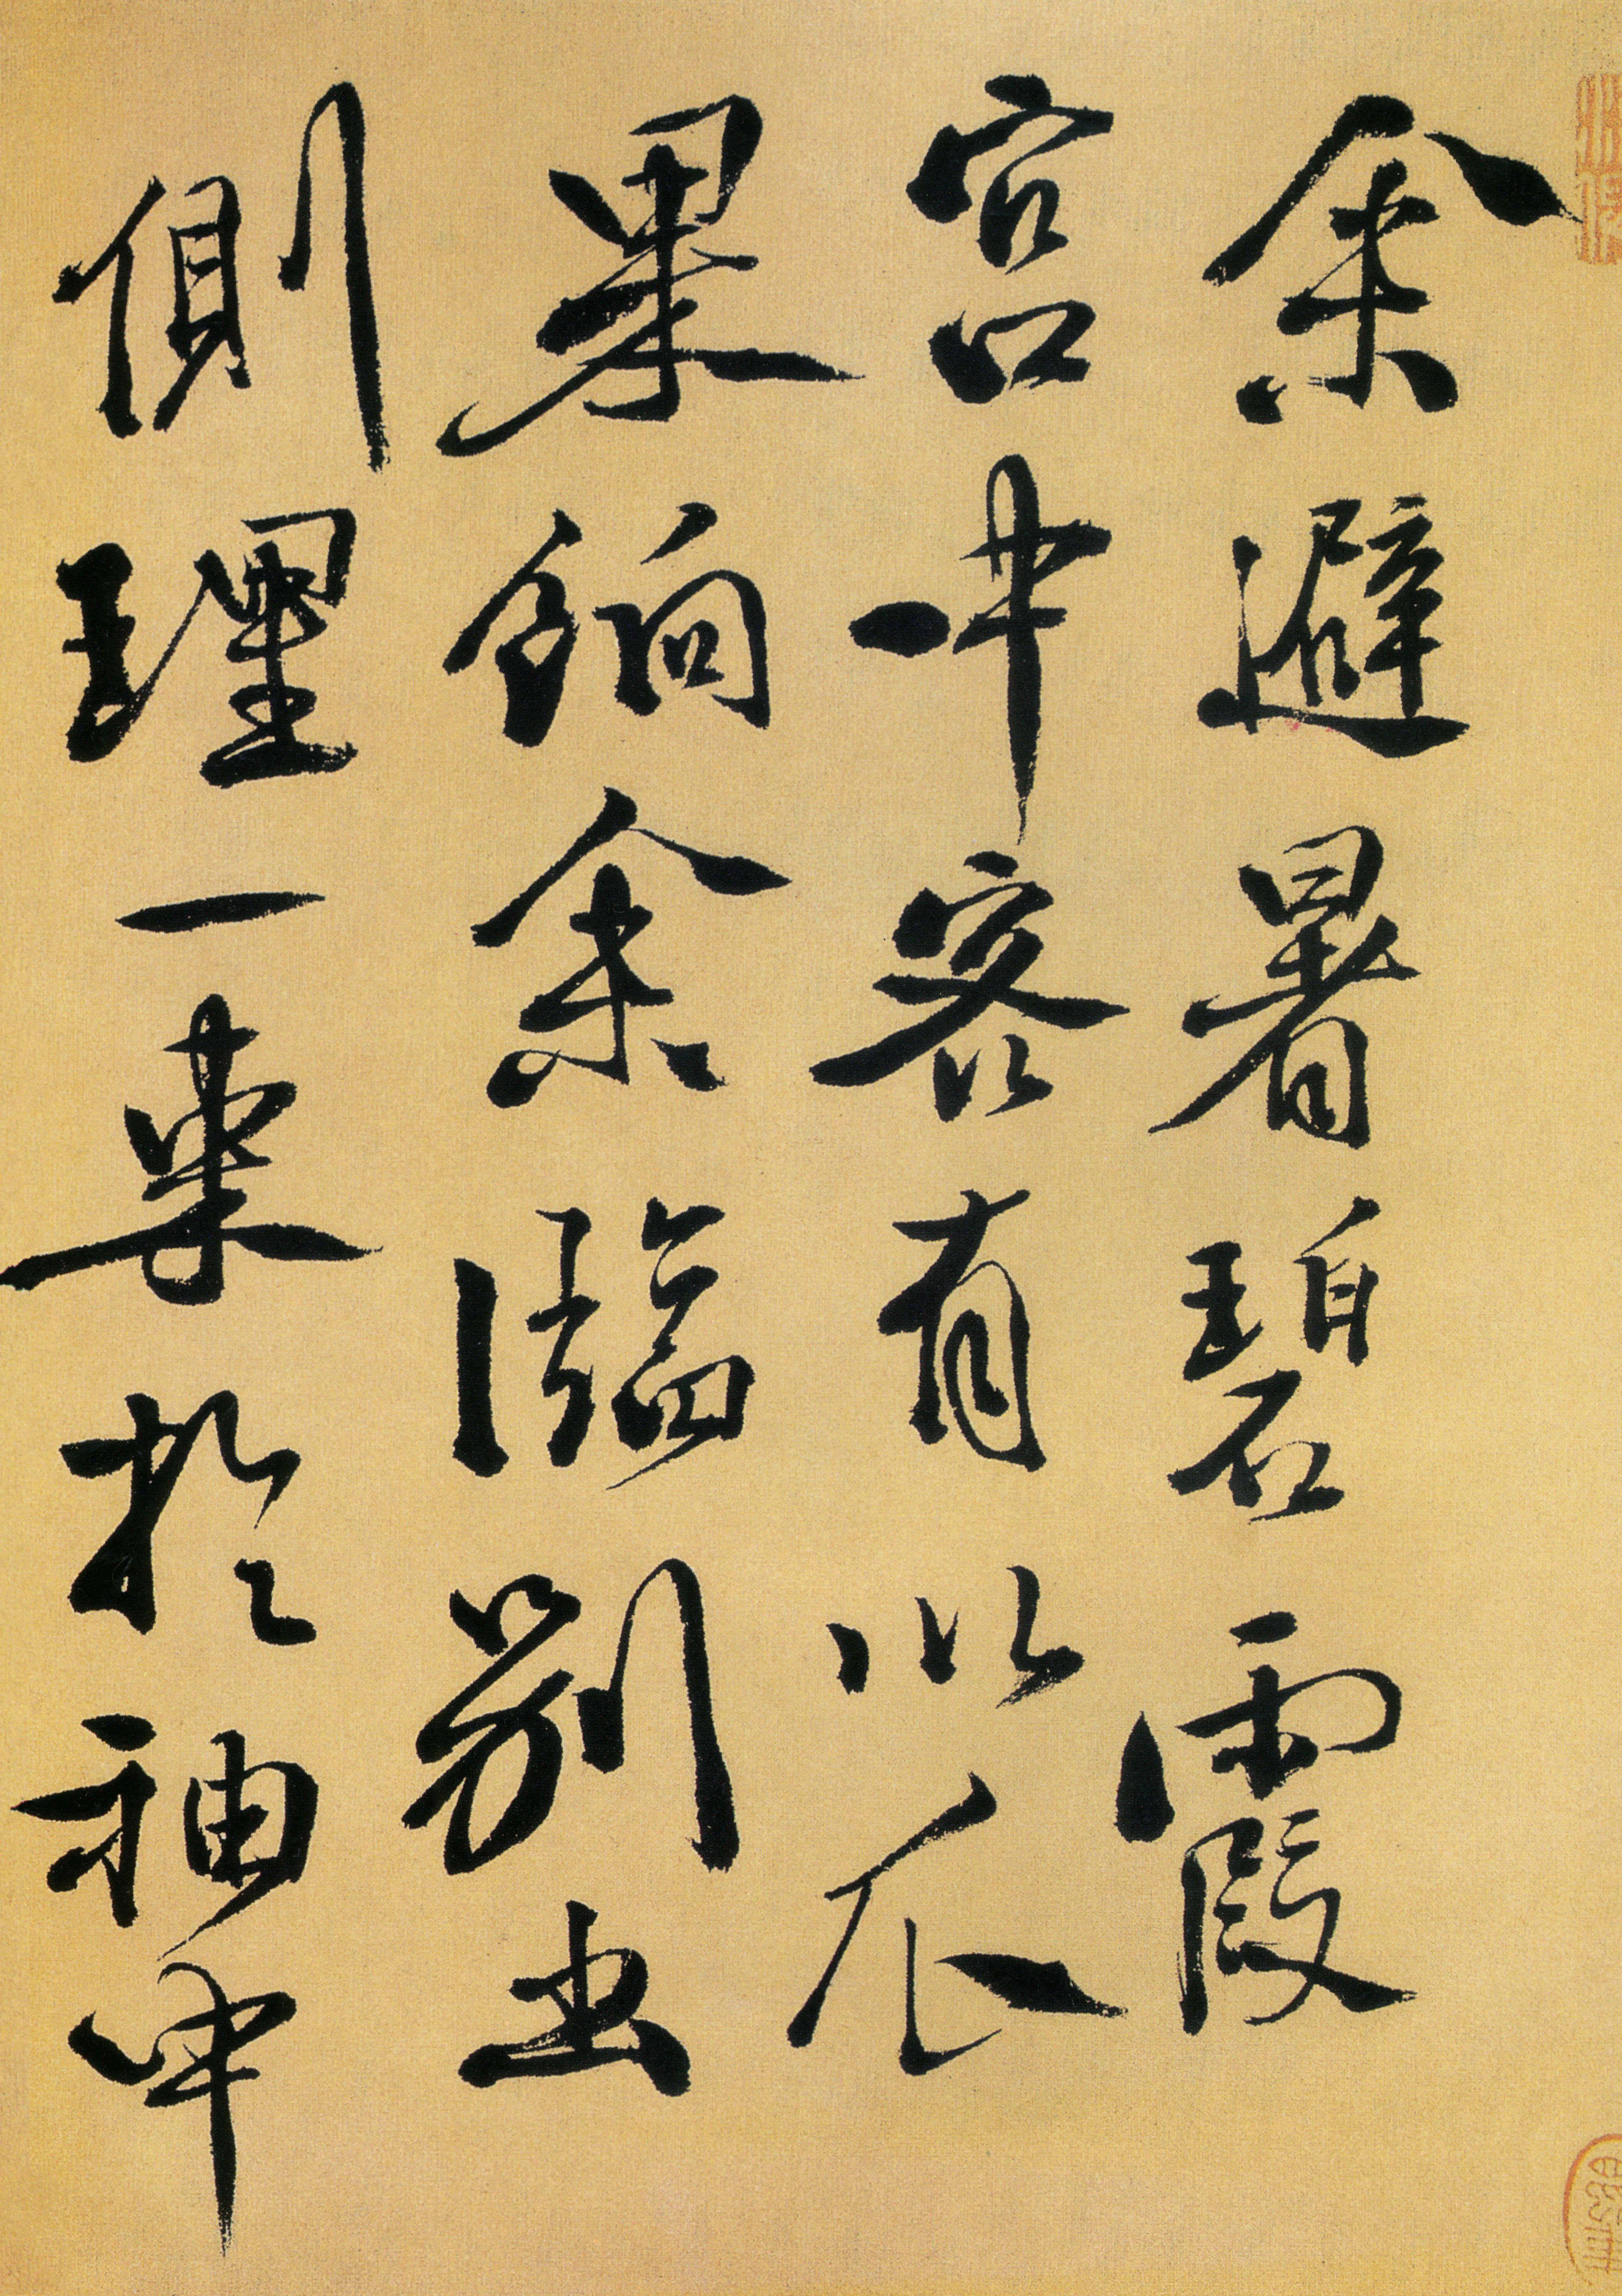 余避暑碧霞
宮中客有以瓜
果餉余臨別出
側理一束於袖中